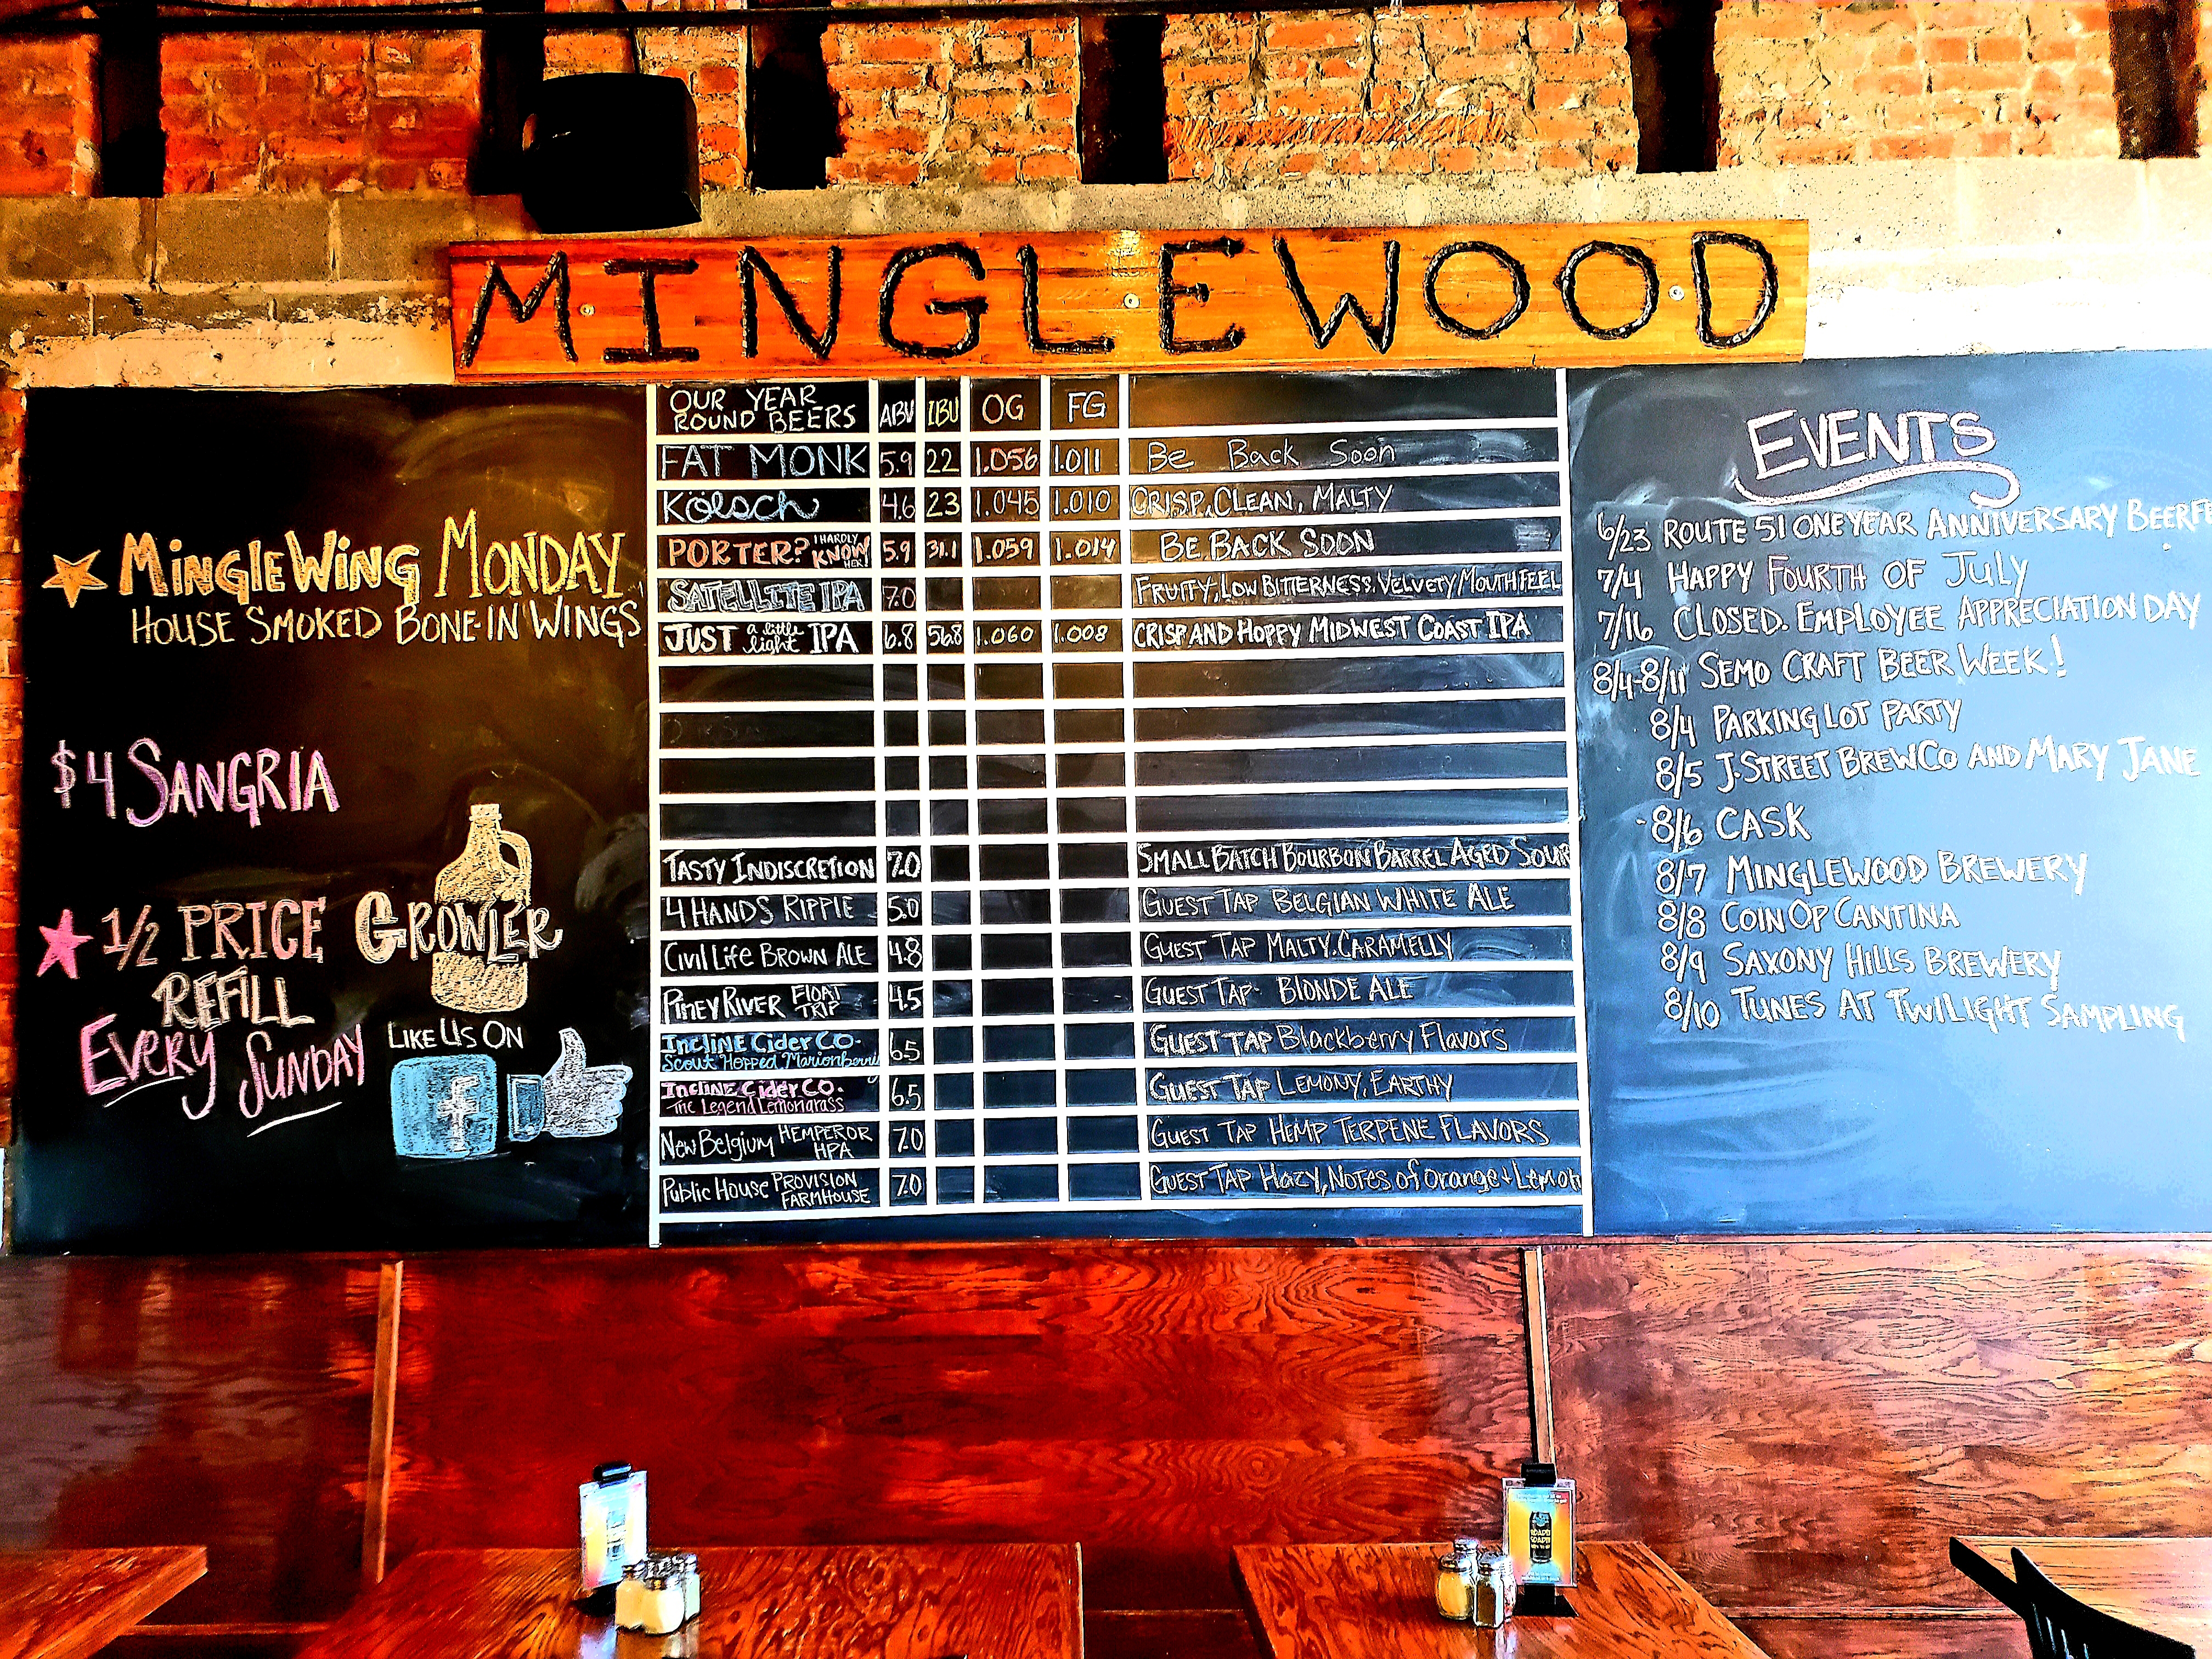 MINGLEWOOD
MINGLEWING MONDAY
HOUSE SMOKED BONE-IN WINGS
$4 SANGRIA
1/2 PRICE GROWLER
REFILL
EVERY SUNDAY
LIKE US ON
f
OUR YEAR ROUND BEERS ABV IBU OG FG
FAT MONK 5.9 22 1.056 1.011 Be Back Soon
Kölsch 4.6 23 1.045 1.010 CRISP, CLEAN, MALTY
PORTER? I HARDLY KNOW HER! 5.9 31.1 1.059 1.014 BE BACK SOON
SATELLITE IPA 7.0 FRUITY, LOW BITTERNESS. VELVETY MOUTHFEEL
JUST a little light IPA 6.8 56.8 1.060 1.008 CRISP AND HOPPY MIDWEST COAST IPA
TASTY INDISCRETION 7.0 SMALL BATCH BOURBON BARREL AGED SOUR
4 HANDS RIPPLE 5.0 GUEST TAP BELGIAN WHITE ALE
CIVIL LIFE BROWN ALE 4.8 GUEST TAP MALTY. CARAMELLY
PINEY RIVER FLOAT TRIP 4.5 GUEST TAP- BLONDE ALE
INCLINE CIDER CO. Scout Hopped Marionberry 6.5 GUEST TAP Blackberry Flavors
INCLINE CIDER CO. The Legend Lemongrass 6.5 GUEST TAP LEMONY, EARTHY
New Belgium HEMPEROR HPA 7.0 GUEST TAP HEMP TERPENE FLAVORS
Public House PROVISION FARMHOUSE 7.0 GUEST TAP Hazy, Notes of Orange + Lemon
EVENTS
6/23 ROUTE 51 ONE YEAR ANNIVERSARY BEERFE
7/4 HAPPY FOURTH OF JULY
7/16 CLOSED. EMPLOYEE APPRECIATION DAY
8/4-8/11 SEMO CRAFT BEER WEEK!
8/4 PARKING LOT PARTY
8/5 J. STREET BREWCO AND MARY JANE
8/6 CASK
8/7 MINGLEWOOD BREWERY
8/8 COIN OP CANTINA
8/9 SAXONY HILLS BREWERY
8/10 TUNES AT TWILIGHT SAMPLING